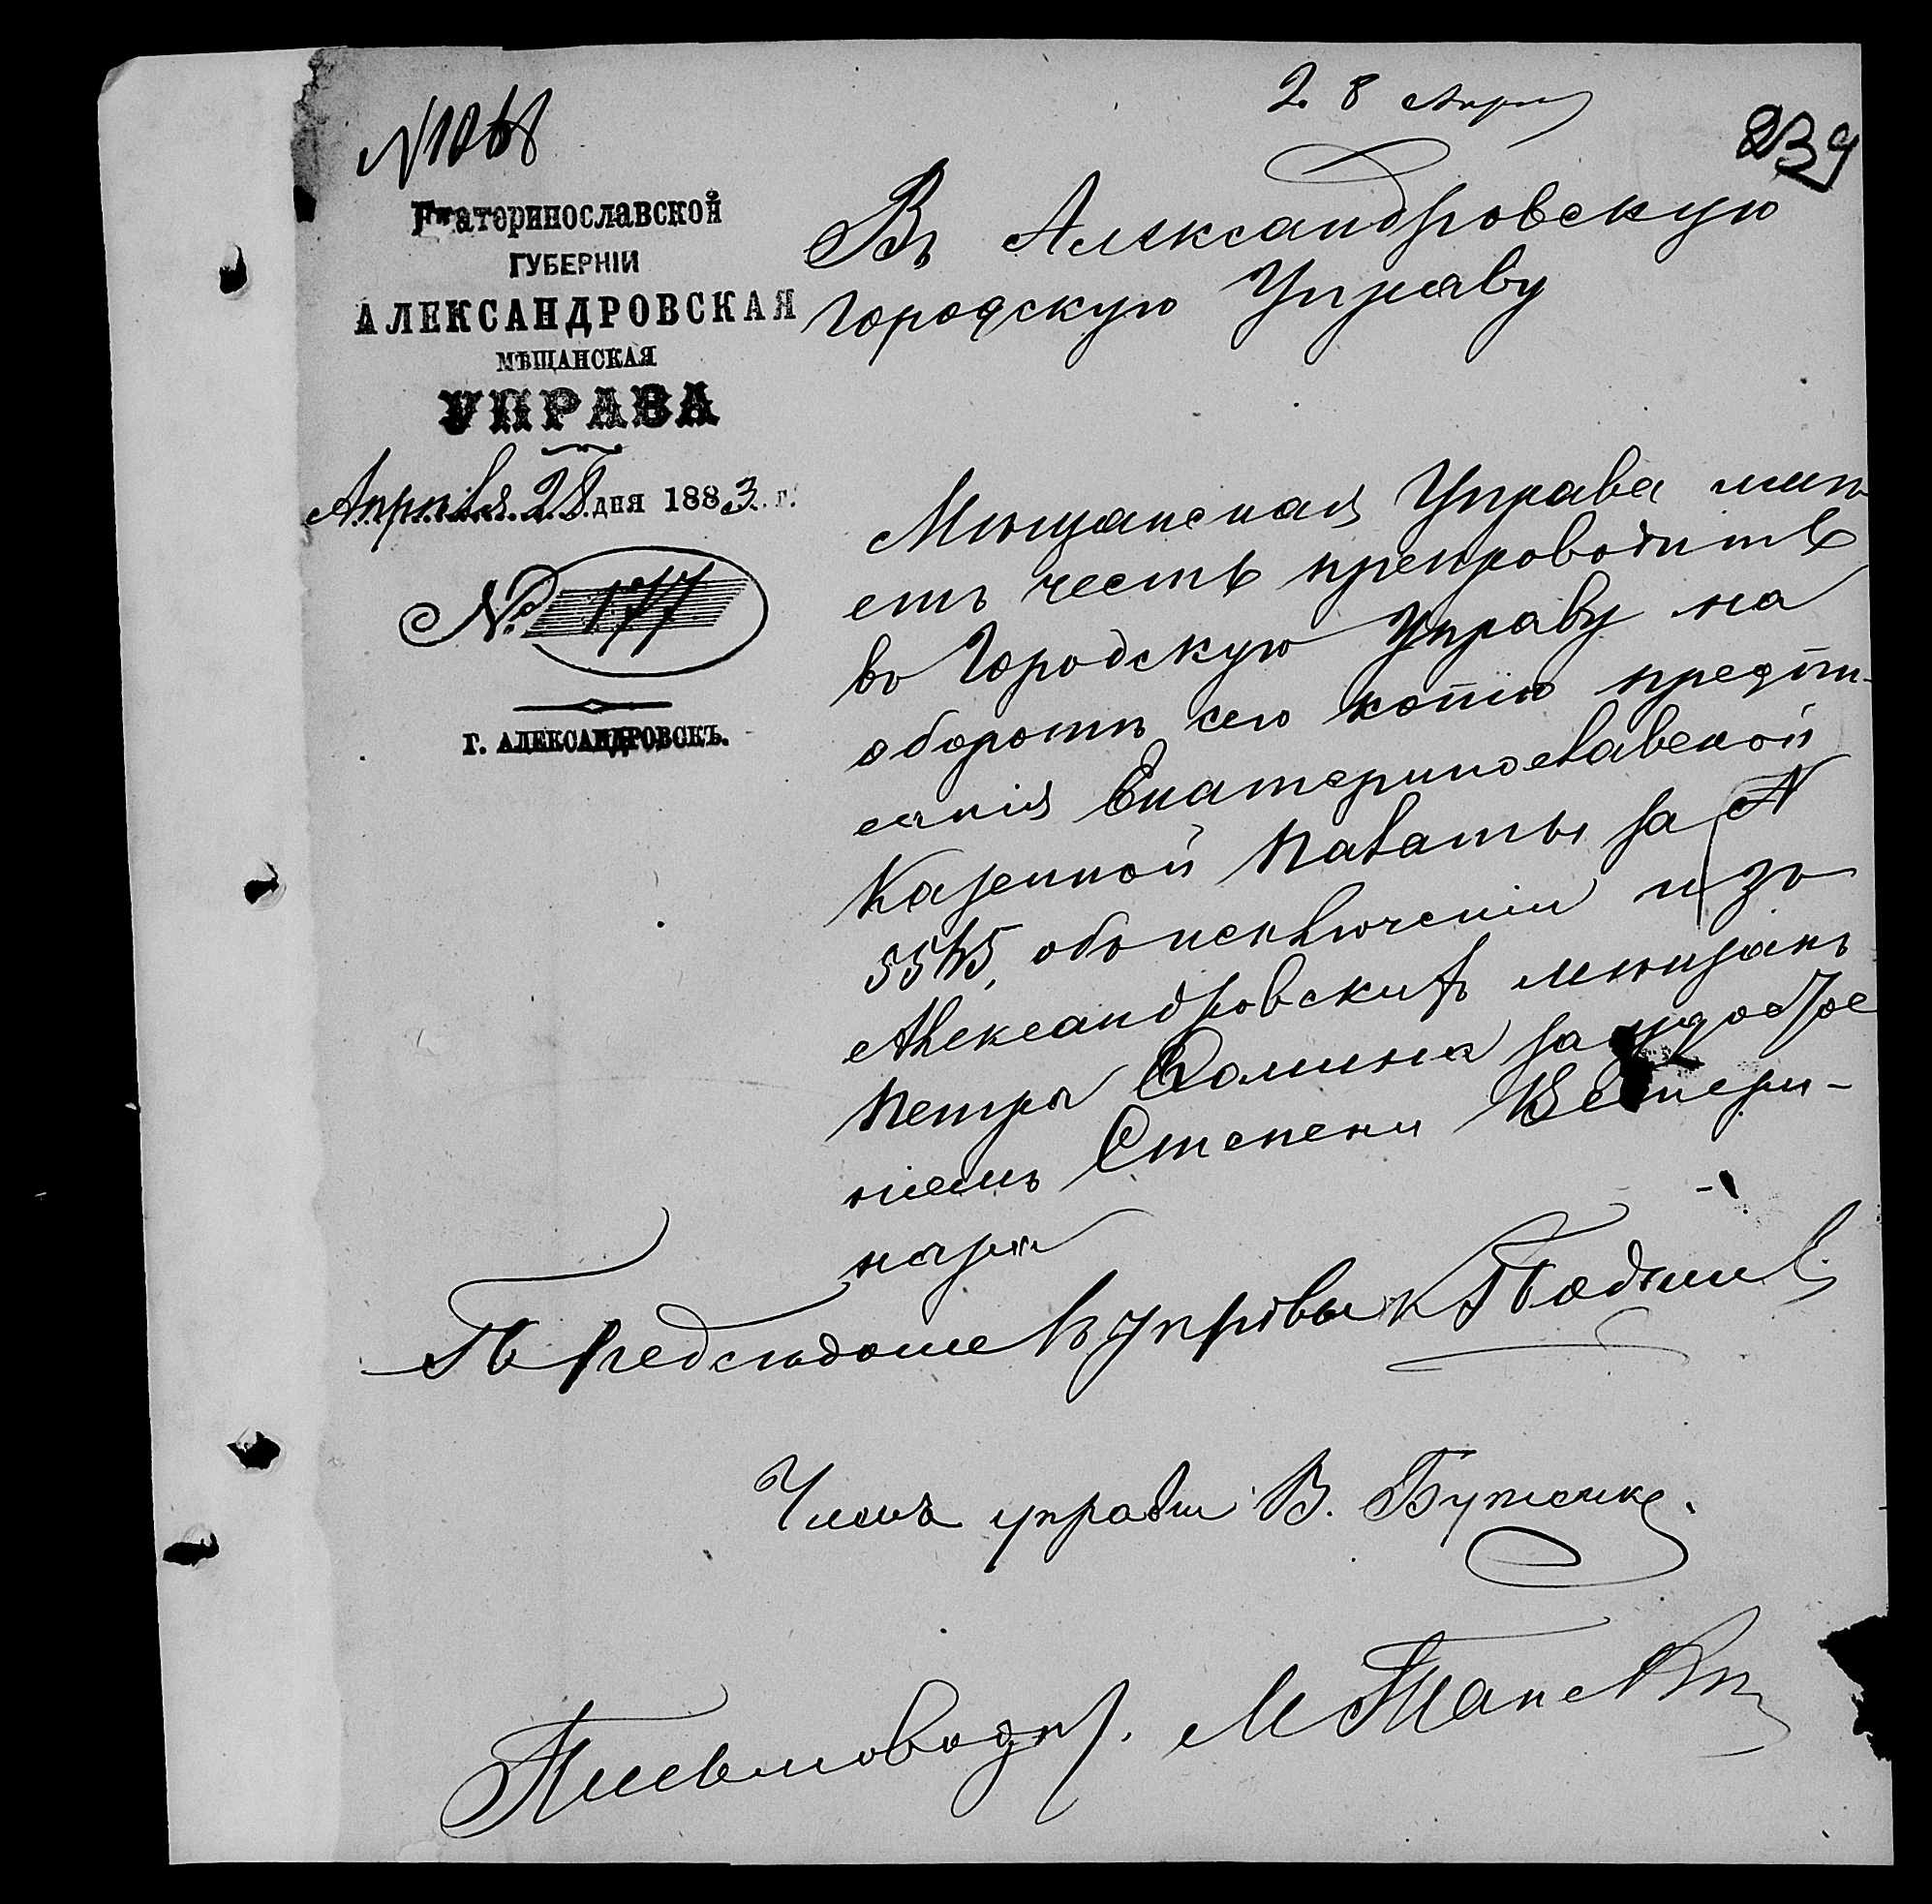 28 Апр
239
Екатеринославской
ГУБЕРНІИ
АЛЕКСАНДРОВСКАЯ
МѢЩАНСКАЯ
УПРАВА
Апрѣля 28 дня 1883 г.
№ 177
г. АЛЕКСАНДРОВСКЪ.
Въ Александровскую
Городскую Управу
Мѣщанская Управа имѣ
етъ честь препроводить
въ Городскую Управу на
оборотѣ сего копію предпи-
санія Екатеринославской
Казенной Палаты за №
объ исключеніи изъ
Александровскихъ мѣщанъ
Петра за удостое
ніемъ Степени Ветери-
нара
Предсѣдатель управы
Членъ управы В. Бутенко.
Письмовод.